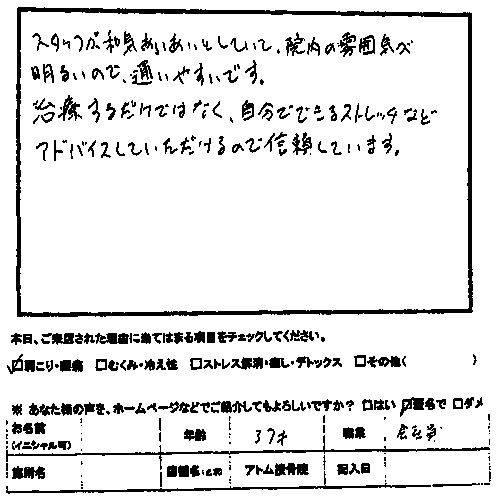 スタッフが和気あいあいとしていて、院内の雰囲気が
明るいので、通いやすいです。
治療するだけではなく、自分でできるストレッチなど
アドバイスしていただけるので信頼しています。
本日、ご来店された理由に当てはまる項目をチェックしてください。
☑肩こり・腰痛 □むくみ・冷え性 □ストレス解消・癒し・デトックス □その他( )
※ あなた様の声を、ホームページなどでご紹介してもよろしいですか? □はい ☑匿名で □ダメ
お名前 (イニシャル可) 年齢 37才 職業 会社員
施術名 店舗名 アトム接骨院 記入日